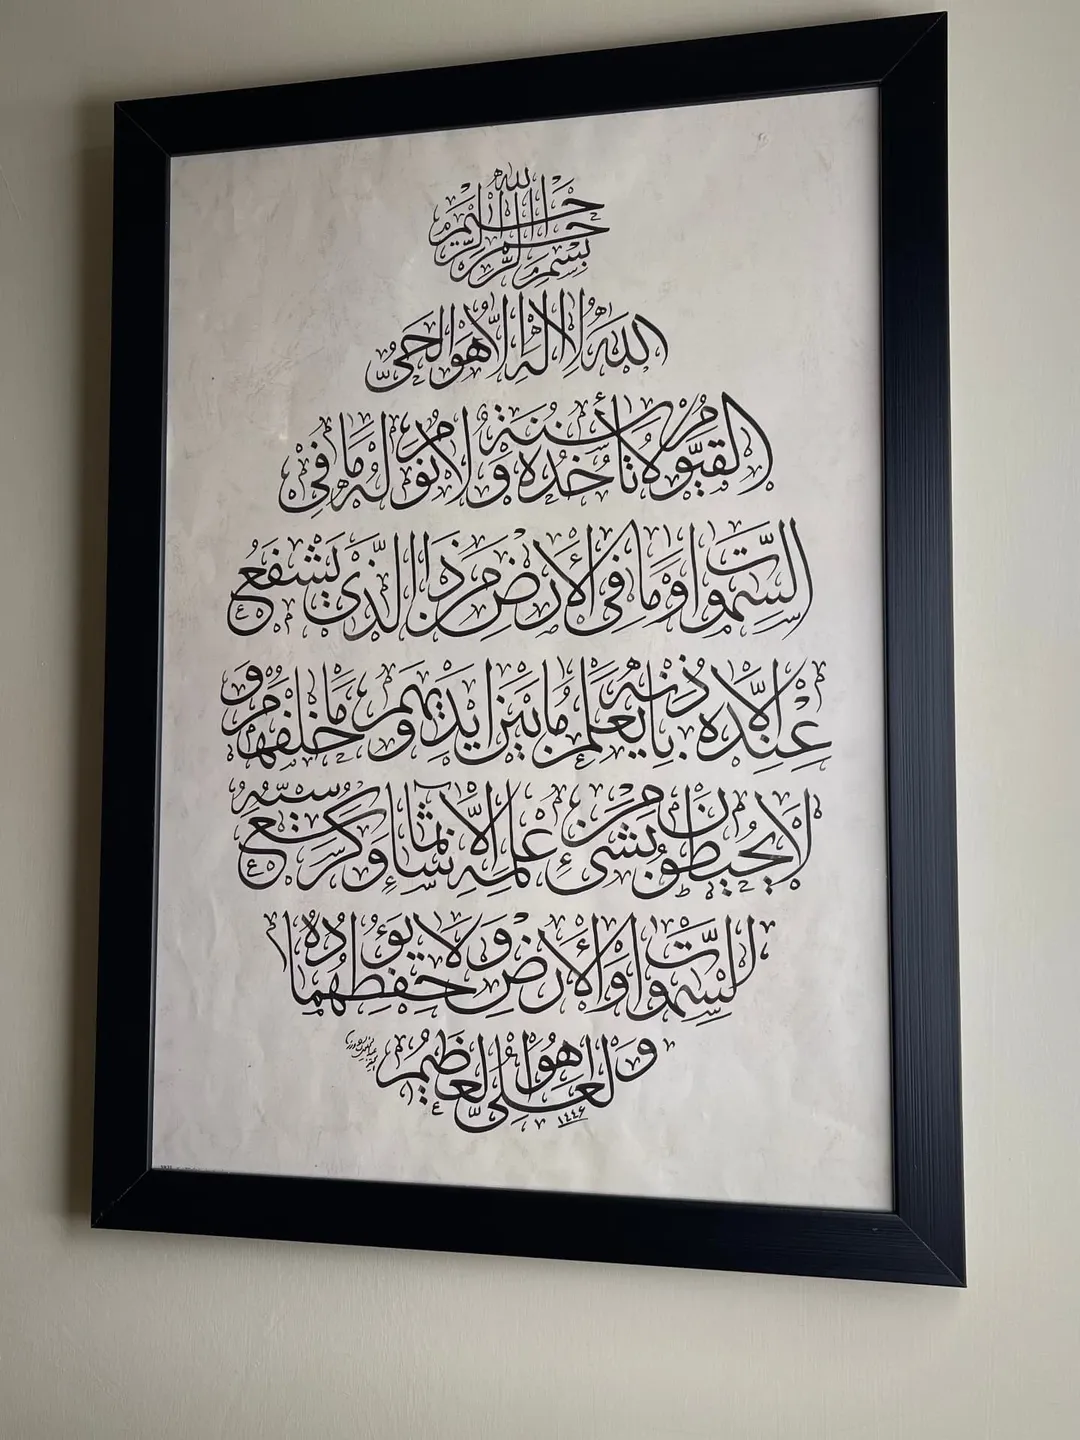 بسم الله الرحمن الرحيم
الله لا اله الا هو الحي
القيوم لا تأخذه سنة ولا نوم له ما في
السموات وما في الأرض من ذا الذي يشفع
عنده الا باذنه يعلم ما بين ايديهم وما خلفهم و
لا يحيطون بشيء من علمه الا بما شاء وسع كرسيه
السموات والأرض ولا يؤده حفظهما
وهو العلي العظيم